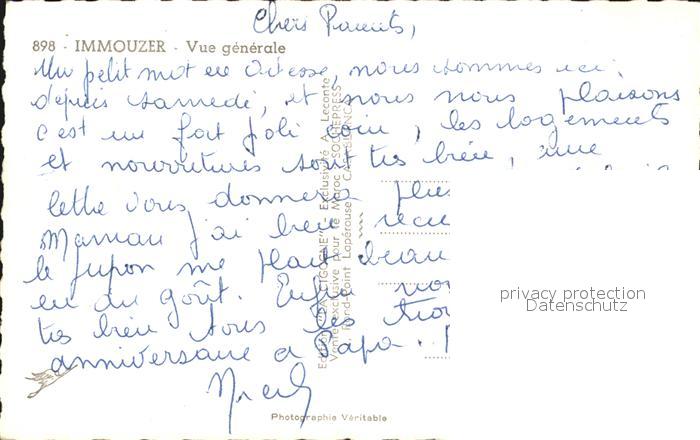 Chers Parents,
898 - IMMOUZER - Vue générale
Un petit mot en vitesse, nous sommes ici
depuis samedi, et nous nous plaisons
c'est un fort joli coin, les logements
et nourritures sont très bien, une
lettre vous donnera plus
Maman j'ai bien reçu
le jupon me plait beau
en du goût. Enfin
très bien tous les
anniversaire à Papa.
Editions "LA CIGOGNE" - Exclusivité A. Leconte
Vente exclusive pour le Maroc : SOCHEPRESS
Rond-Point Lapérouse - CASABLANCA
privacy protection
Datenschutz
Photographie Véritable